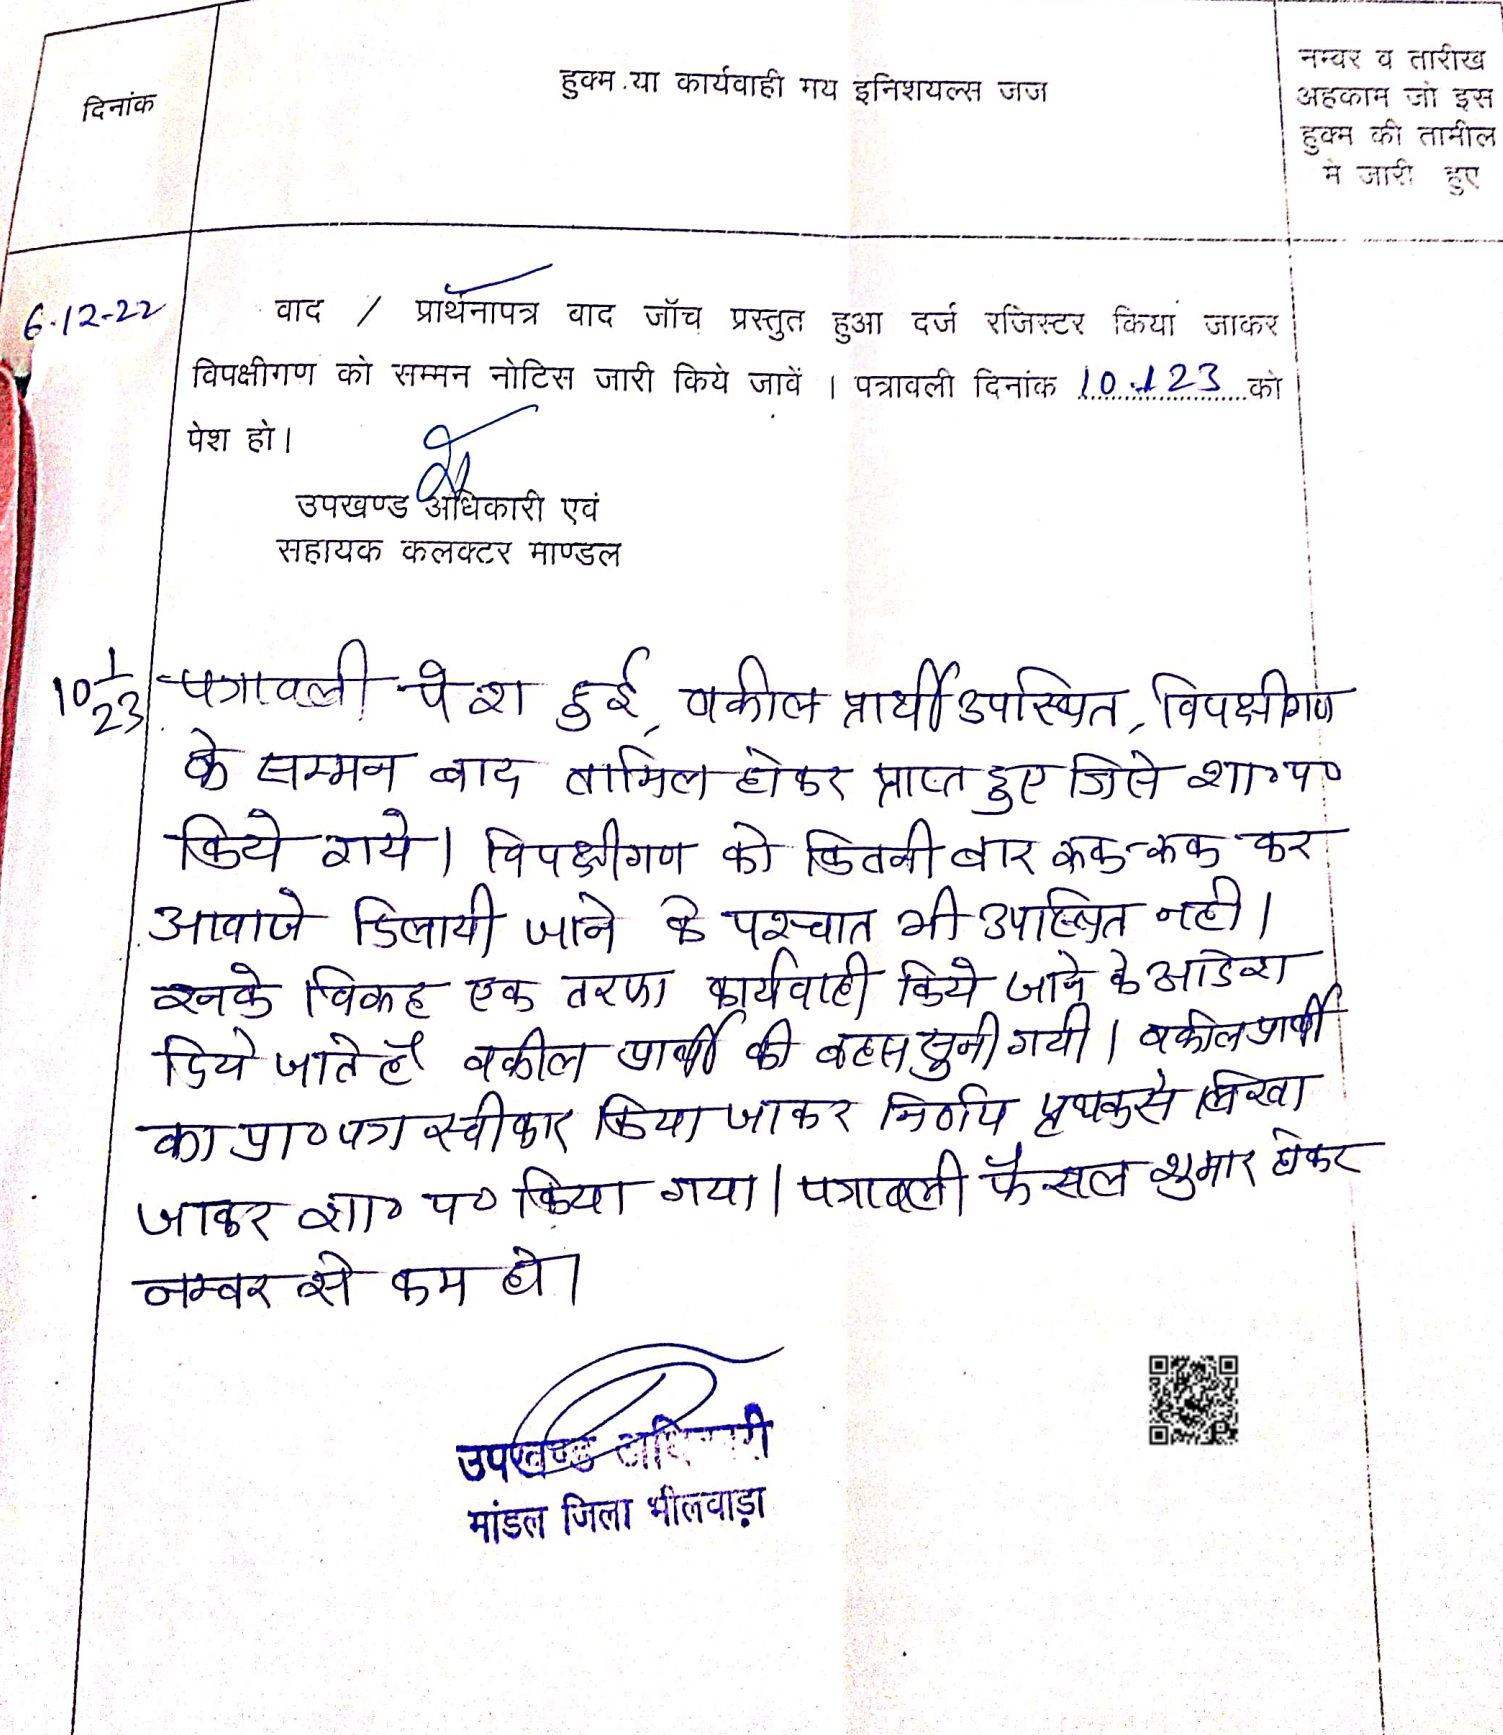 दिनांक
हुक्म या कार्यवाही मय इनिशयल्स जज
नम्वर व तारीख
अहकाम जो इस
हुक्म की तामील
मे जारी हुए
6.12-22
वाद / प्रार्थनापत्र वाद जॉच प्रस्तुत हुआ दर्ज रजिस्टर किया जाकर
विपक्षीगण को सम्मन नोटिस जारी किये जावें । पत्रावली दिनांक 10.1.23 को
पेश हो।
उपखण्ड अधिकारी एवं
सहायक कलक्टर माण्डल
10 1/23
पत्रावली पेश हुई, वकील प्रार्थी उपस्थित, विपक्षीगण
के सम्मन बाद तामिल होकर प्राप्त हुए जिसे शा०प०
किये गये। विपक्षीगण को कितनी बार रूक-रूक कर
आवाजे दिलायी जाने के पश्चात भी उपस्थित नही।
इनके विरूद्ध एक तरफा कार्यवाही किये जाने के आदेश
दिये जाते है वकील प्रार्थी की बहस सुनी गयी। वकील प्रार्थी
का प्रा०पत्र स्वीकार किया जाकर निर्णय पृथक से लिखा
जाकर शा० प० किया गया। पत्रावली फैसल शुमार होकर
नम्बर से कम हो।
उपखण्ड अधिकारी
मांडल जिला भीलवाड़ा